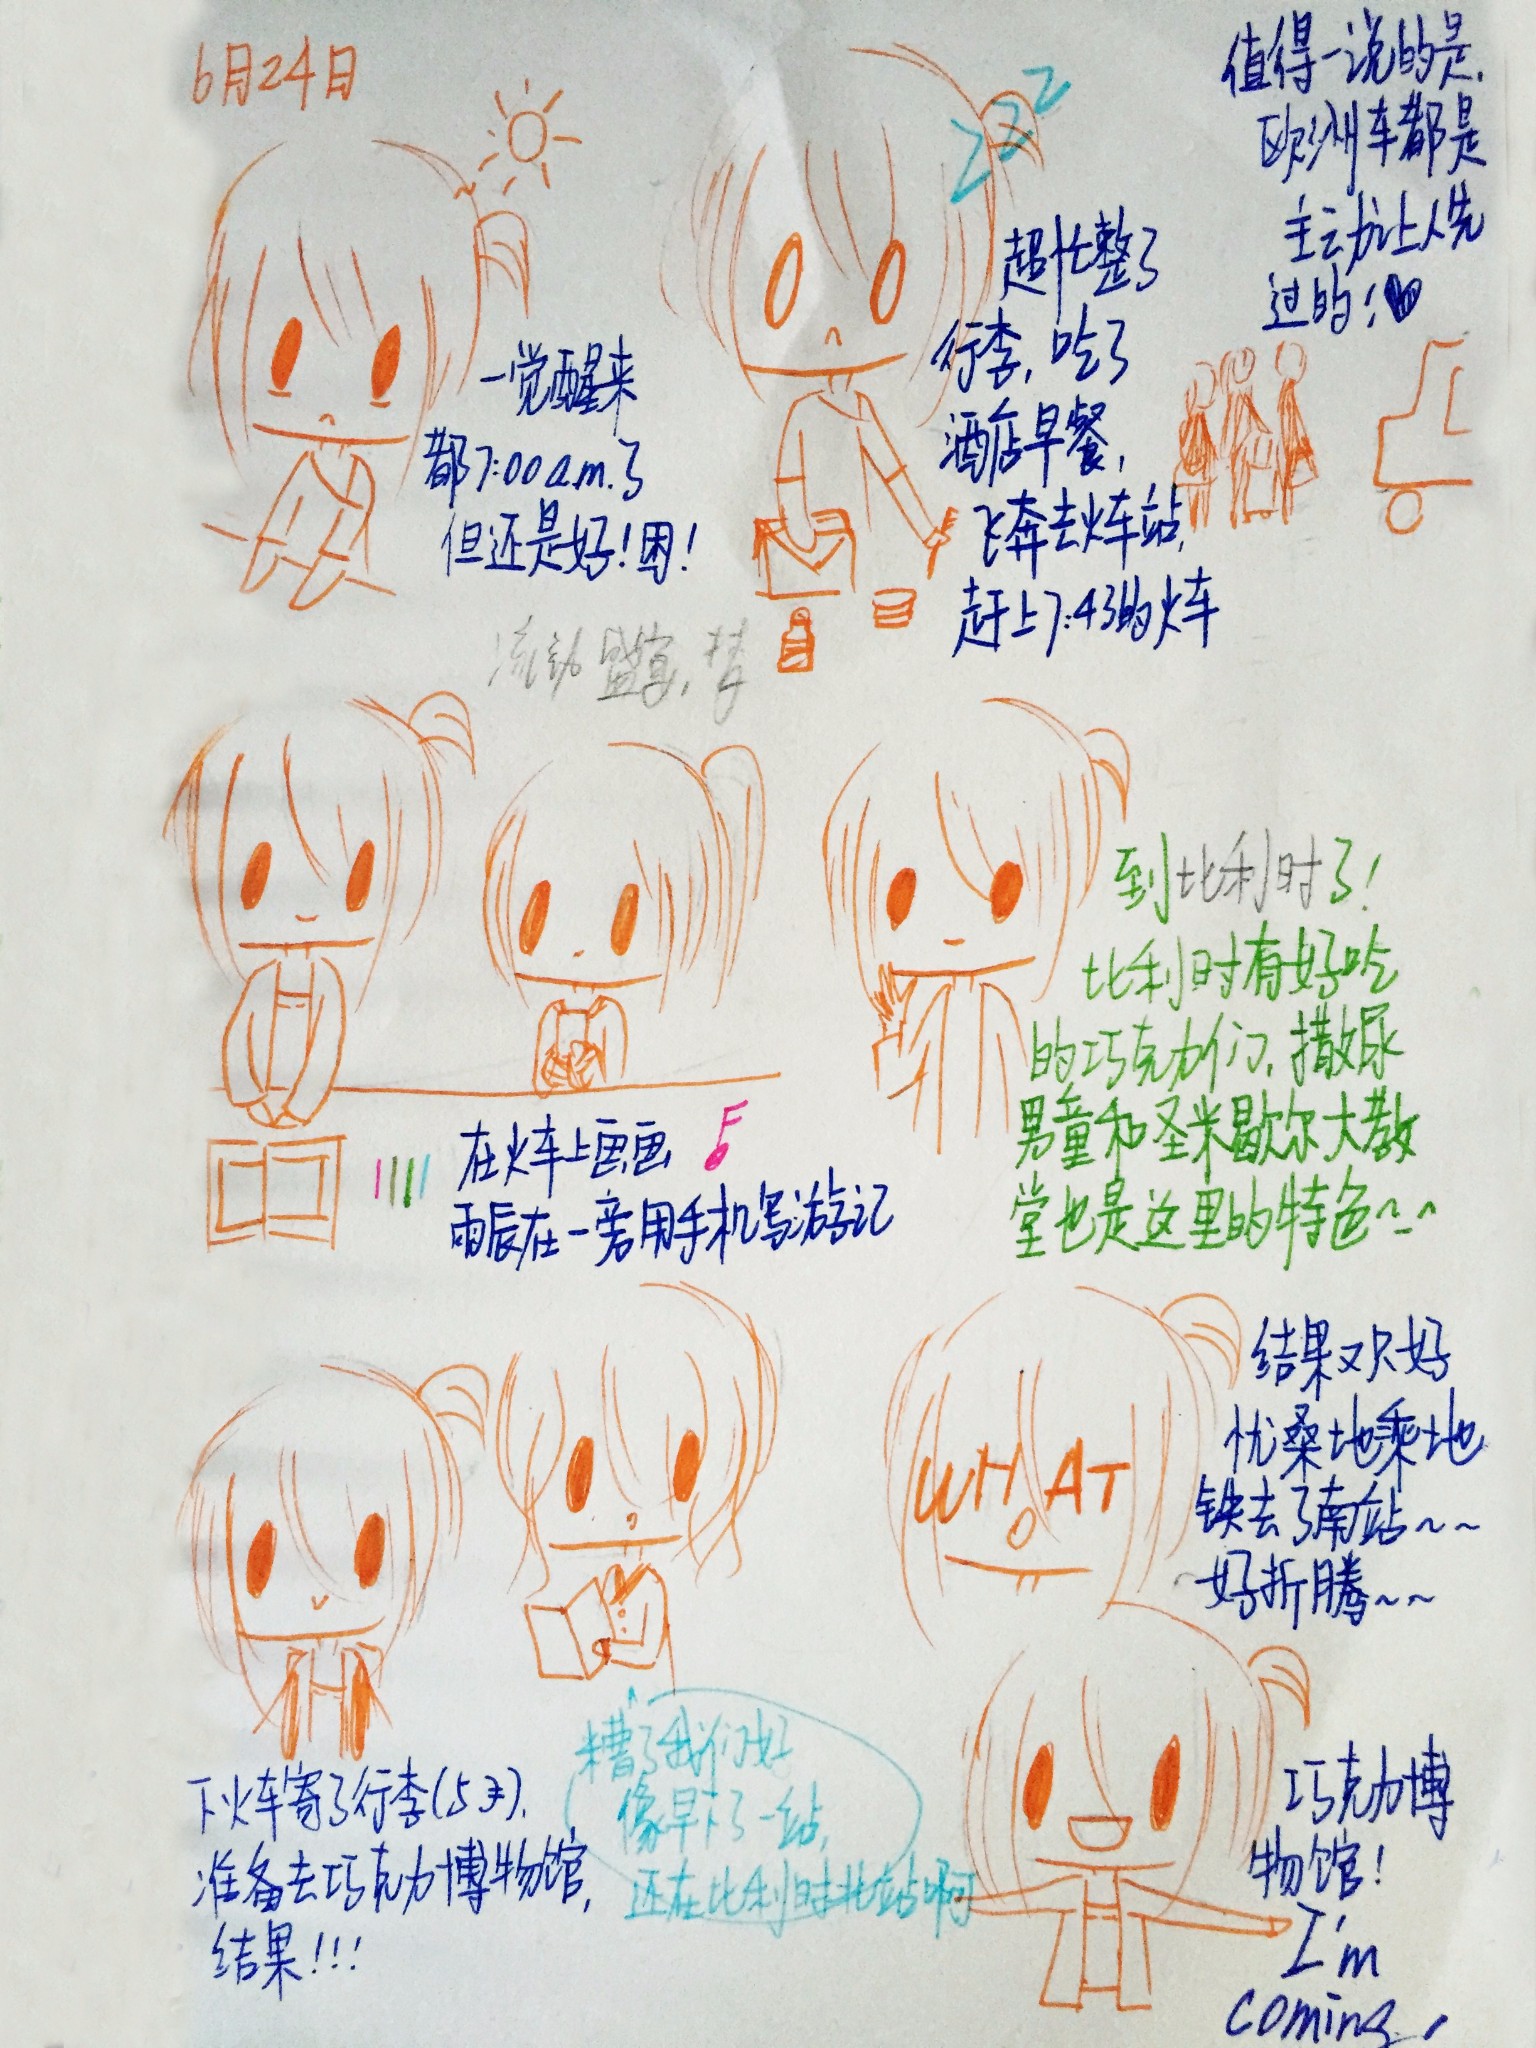 6月24日
一觉醒来
都7:00a.m.了
但还是好!困!
zzz
超忙整了
行李,吃了
酒店早餐,
飞奔去火车站,
赶上7:43的火车
值得一说的是,
欧洲车都是
主动让人先
过的!
流动盛宴,梦
在火车上画画
雨辰在一旁用手机写游记
到比利时了!
比利时有好吃
的巧克力们,撒尿
男童和圣米歇尔大教
堂也是这里的特色~~
下火车寄了行李(5天),
准备去巧克力博物馆,
结果!!!
糟了我们好
像早下了一站,
还在比利时北站啊
WHAT
结果又只好
忧桑地乘地
铁去了南站~~
好折腾~~
巧克力博
物馆!
I'm
coming